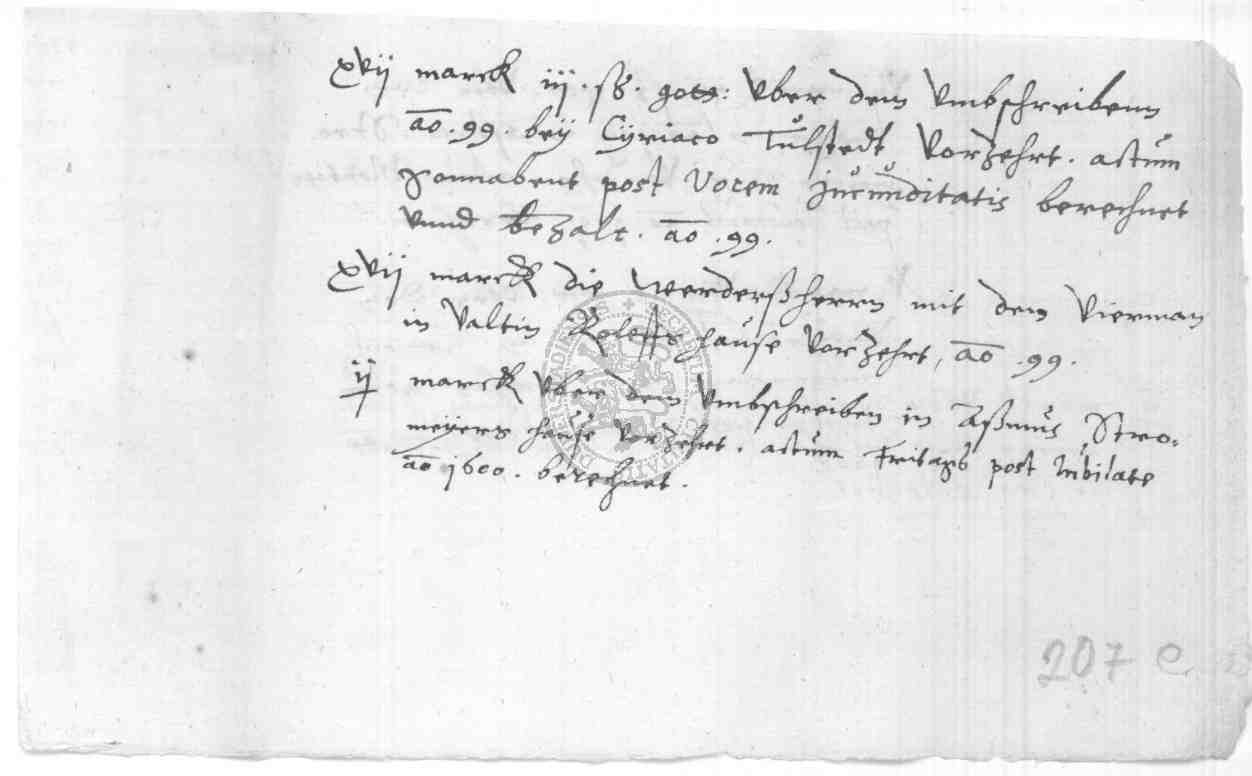 xvij marck iij . ß . gots: vber dem vmbschreibenn
ao . 99 . beÿ Cÿriaco Tulstedt vorzehrt . actum
Sonnabent post Vocem Jucunditatis berechnet
vnnd bezalt . ao . 99 .
xvij marck die werderßherrn mit dem vierman
in Valtin Roleffs hause vorzehrt, ao . 99 .
ij marck vber dem vmbschreiben in Aßmus Stro-
meÿers hause vorzehrt . actum Fritags post Jubilate
ao 1600 . berechnet .
207 e